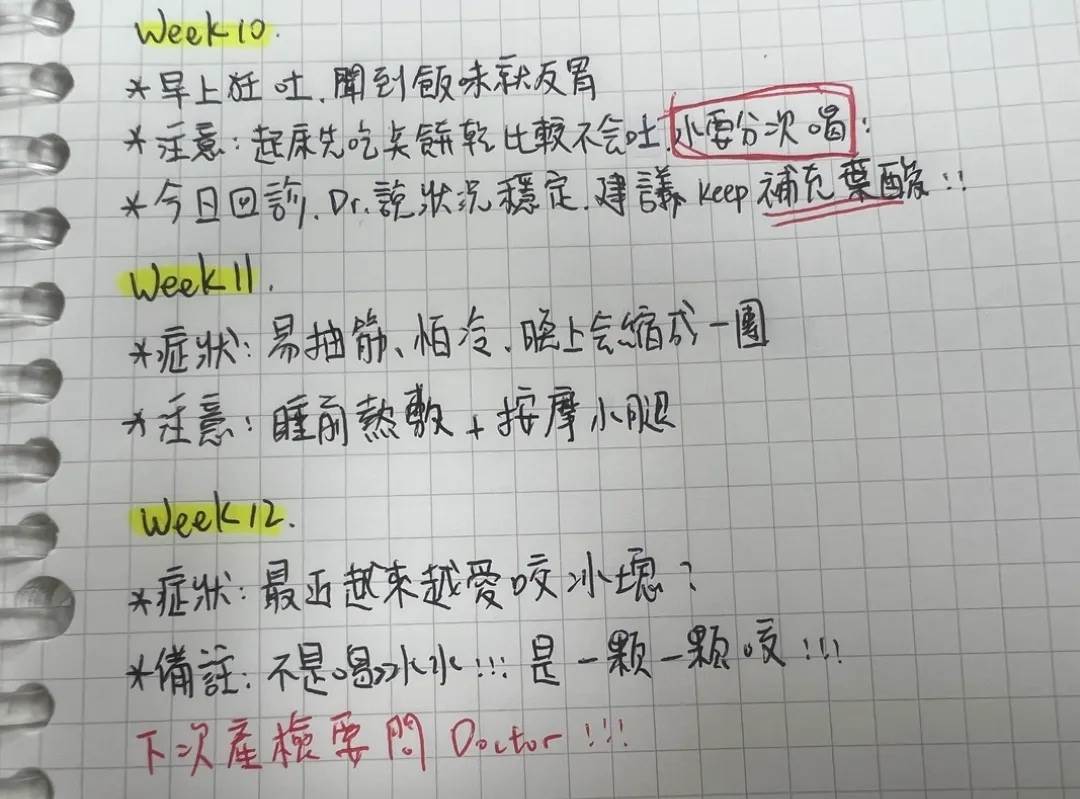 Week 10.
*早上狂吐、聞到飯味就反胃
*注意：起床先吃点餅乾比較不会吐、水要分次喝！
*今日回診、Dr.說狀況穩定、建議 keep 補充葉酸！！
Week 11.
*症狀：易抽筋、怕冷、晚上会縮成一團
*注意：睡前熱敷 + 按摩小腿
Week 12.
*症狀：最近越來越愛咬冰塊？
*備註：不是喝冰水!!! 是一顆一顆咬!!!
下次產檢要問 Doctor!!!